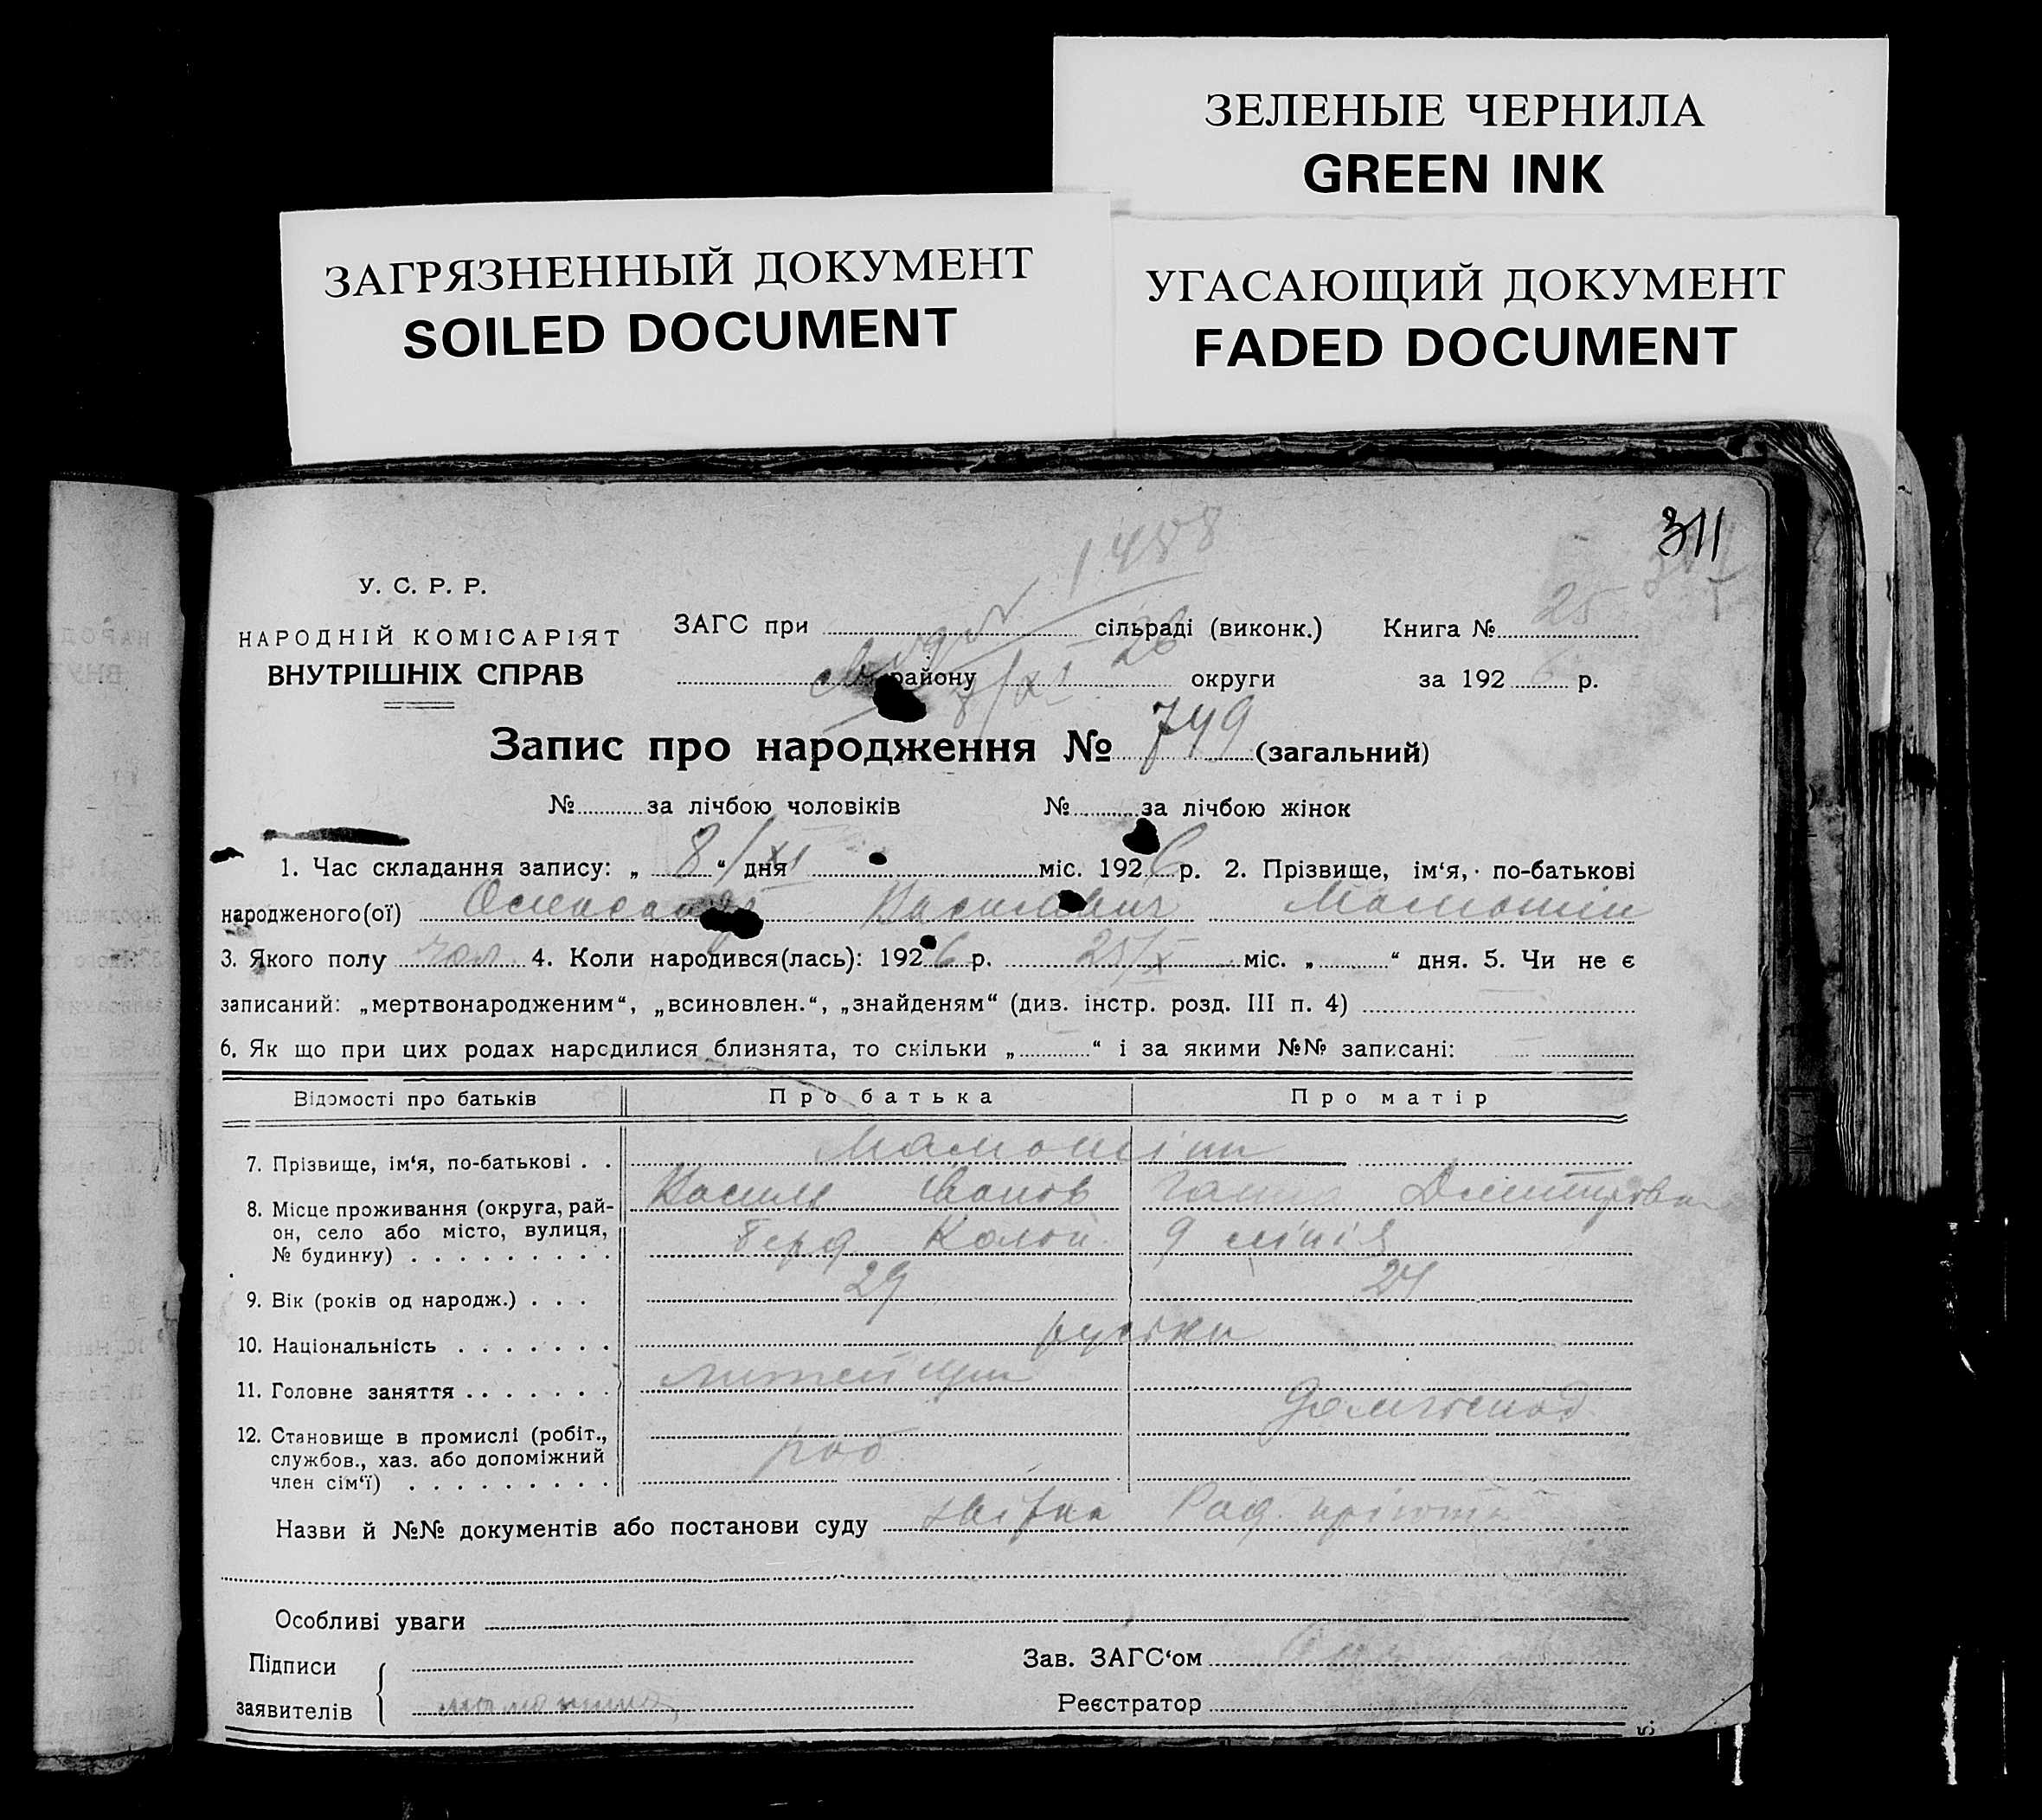 ЗЕЛЕНЫЕ ЧЕРНИЛА
GREEN INK
ЗАГРЯЗНЕННЫЙ ДОКУМЕНТ
SOILED DOCUMENT
УГАСАЮЩИЙ ДОКУМЕНТ
FADED DOCUMENT
311
1488
У. С. Р. Р.
НАРОДНІЙ КОМІСАРІЯТ
ВНУТРІШНІХ СПРАВ
ЗАГС при сільраді (виконк.) Книга № 25
району округи за 1926 р.
8/XI 26
Запис про народження № 749 (загальний)
№ за лічбою чоловіків № за лічбою жінок
1. Час складання запису: „ 8/XI “ дня міс. 1926 р. 2. Прізвище, ім‘я, по-батькові
народженого(ої) Олександр Васильович Мамошин
3. Якого полу чол 4. Коли народився(лась): 1926 р. 25/X міс. „ “ дня. 5. Чи не є
записаний: „мертвонародженим“, „всиновлен.“, „знайденям“ (див. інстр. розд. III п. 4)
6. Як що при цих родах народилися близнята, то скільки „ “ і за якими №№ записані:
Відомості про батьків Про батька Про матір
7. Прізвище, ім‘я, по-батькові . . Мамошіни
Василь Іванов Ганна Дмитрівна
8. Місце проживання (округа, рай-
он, село або місто, вулиця,
№ будинку) . . . . . . . . . Колон. 9 лінія
9. Вік (років од народж.) . . . 29 24
10. Національність . . . . . . . руські
11. Головне заняття . . . . . . . литейщик Домгоспод.
12. Становище в промислі (робіт.,
службов., хаз. або допоміжний
член сім‘ї) . . . . . . . . . роб
Назви й №№ документів або постанови суду Рад.
Особливі уваги
Підписи
заявителів Мамошина
Зав. ЗАГС‘ом
Реєстратор